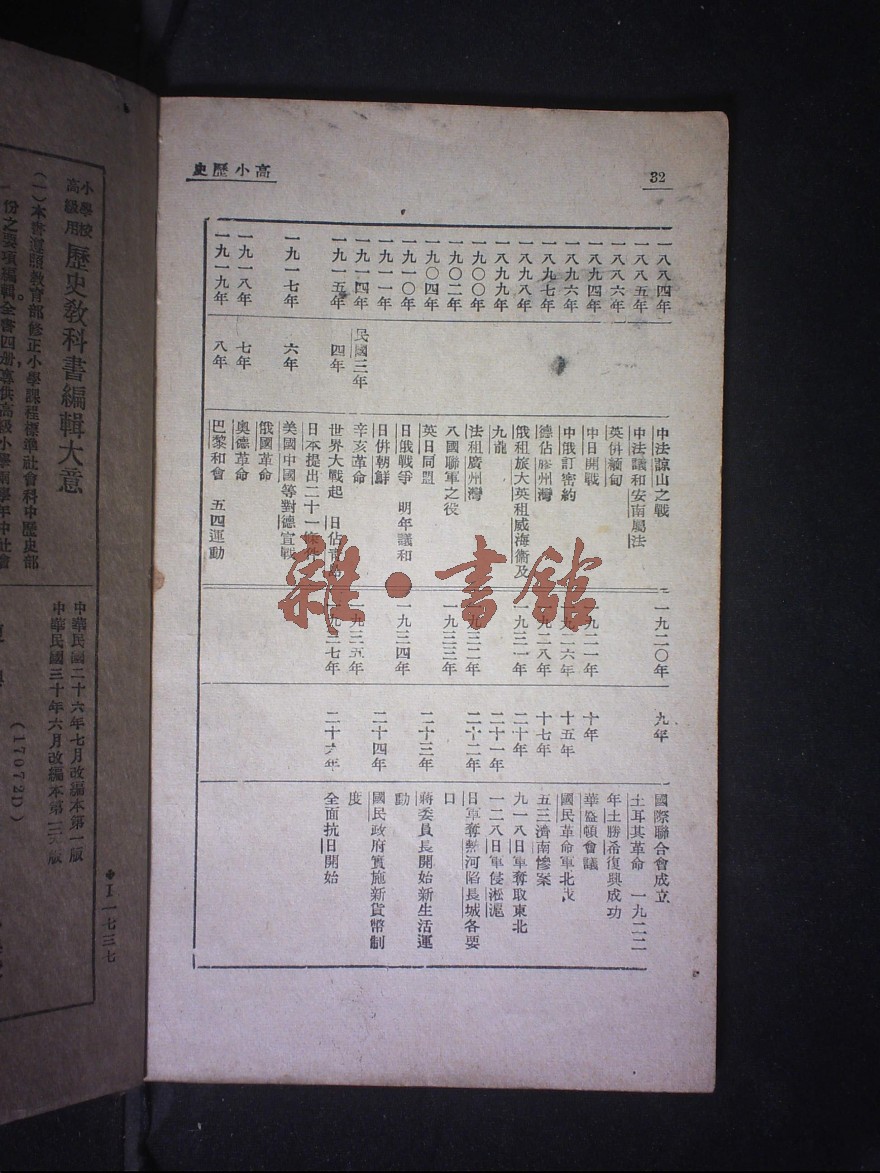 高小歷史
32
一八八四年
中法諒山之戰
一八八五年
中法議和安南屬法
一八八六年
英併緬甸
一八九四年
中日開戰
一八九六年
中俄訂密約
一八九七年
德佔膠州灣
一八九八年
俄租旅大英租威海衞及
九龍
一八九九年
法租廣州灣
一九〇〇年
八國聯軍之役
一九〇二年
英日同盟
一九〇四年
日俄戰爭 明年議和
一九一〇年
日併朝鮮
一九一一年
辛亥革命
一九一四年
民國三年
世界大戰起 日佔青島
一九一五年
四年
日本提出二十一條件
一九一七年
六年
美國中國等對德宣戰
俄國革命
一九一八年
七年
奧德革命
一九一九年
八年
巴黎和會 五四運動
一九二〇年
九年
國際聯合會成立
土耳其革命 一九二二
年土勝希復興成功
一九二一年
十年
華盛頓會議
一九二六年
十五年
國民革命軍北伐
一九二八年
十七年
五三濟南慘案
一九三一年
二十年
九一八日軍奪取東北
一九三二年
二十一年
一二八日軍侵淞滬
一九三三年
二十二年
日軍奪熱河陷長城各要
口
一九三四年
二十三年
蔣委員長開始新生活運
動
一九三五年
二十四年
國民政府實施新貨幣制
度
一九三七年
二十六年
全面抗日開始
雜·書館
小學校
高級用
歷史教科書編輯大意
(一)本書遵照教育部修正小學課程標準社會科中歷史部
份之要項編輯全書四册專供高級小學兩學年中社會
中華民國二十六年七月改編本第一版
中華民國三十年六月改編本第
(17072D)
I一七三七